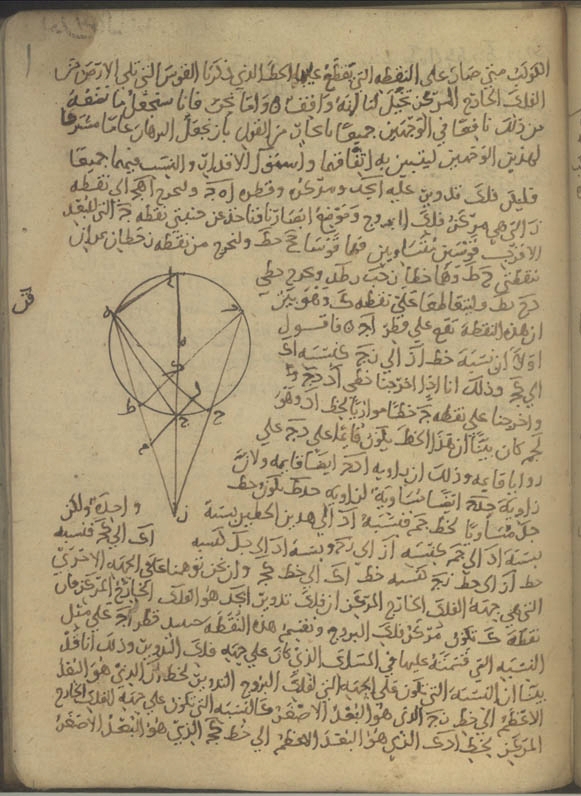 الكوكب متى صار على النقطه التى يقطع عليها الخط الذى ذكرنا القوس التى تلى الارض من
الفلك الخارج المركز تخيل لنا انه واقف واما نحن فانا سنجعل ما نثبته
من ذلك نافعا فى الوجهين جميعا بايجاز من القول بان نجعل البرهان عاما مشتركا
لهذين الوجهين ليتبين به اتفاقهما واستواء الاقدار والنسب فيهما جميعا
فليكن فلك تدوير عليه ا ب ج د ومركزه ه وقطره ا ه ج ولنخرج ا ه ج الى نقطه
ز التى هى مركز فلك البروج ونوضع انصار نافناخذ عن جنبتى نقطه ج التى للبعد
الاقرب قوسين متساويين فهما قوسا ج ح ج ط ولنخرج من نقطه ز خطان يمران
بنقطتى ح ط وهما خطا ز ح ب ز ط د ونخرج خطى
د ح ب ط وليتقاطعا على نقطه ك وهو بين
ان هذه النقطه تقع على قطر ا ج فاقول
اولا ان نسبة خط ا ز الى ز ج كنسبة ا ك
الى ك ج وذلك انا اذا اخرجنا خطى ا د د ج
واخرجنا على نقطه ج خطا موازيا لخط ا د وهو
ل ج م كان بينا ان هذا الخط يكون قائما على د ج على
زوايا قايمه وذلك ان زاويه ا د ج ايضا قايمه ولان
زاوية ج د ح ايضا مساوية لزاويه ج د ط يكون خط
ج ل مساويا لخط ج م فنسبة ا د الى هذين الخطين نسبة واحدة ولكن
نسبة ا د الى ج م كنسبة ا ز الى ز ج ونسبة ا د الى ج ل كنسبه ا ك الى ك ج فنسبه
خط ا ز الى خط ز ج كنسبه خط ا ك الى خط ك ج وان نحن توهمنا على الجهه الاخرى
التى هى جهة الفلك الخارج المركز ان فلك تدوير ا ب ج د هو الفلك الخارج المركز فان
نقطة ك تكون مركز فلك البروج ونقسم هذه النقطه حينئذ قطر ا ج على مثل
النسبه التى قسمته عليها فى المسلك الذى كان على جهه فلك التدوير وذلك انا قد
بينا ان النسبه التى تكون على الجهه التى لفلك البروج التدوير لخط ا ز الذى هو البعد
الاعظم الى خط ز ج الذى هو البعد الاصغر كالنسبه التى تكون على جهة الفلك الخارج
المركز لخط ا ك الذى هو البعد الاعظم الى خط ك ج الذى هو البعد الاصغر